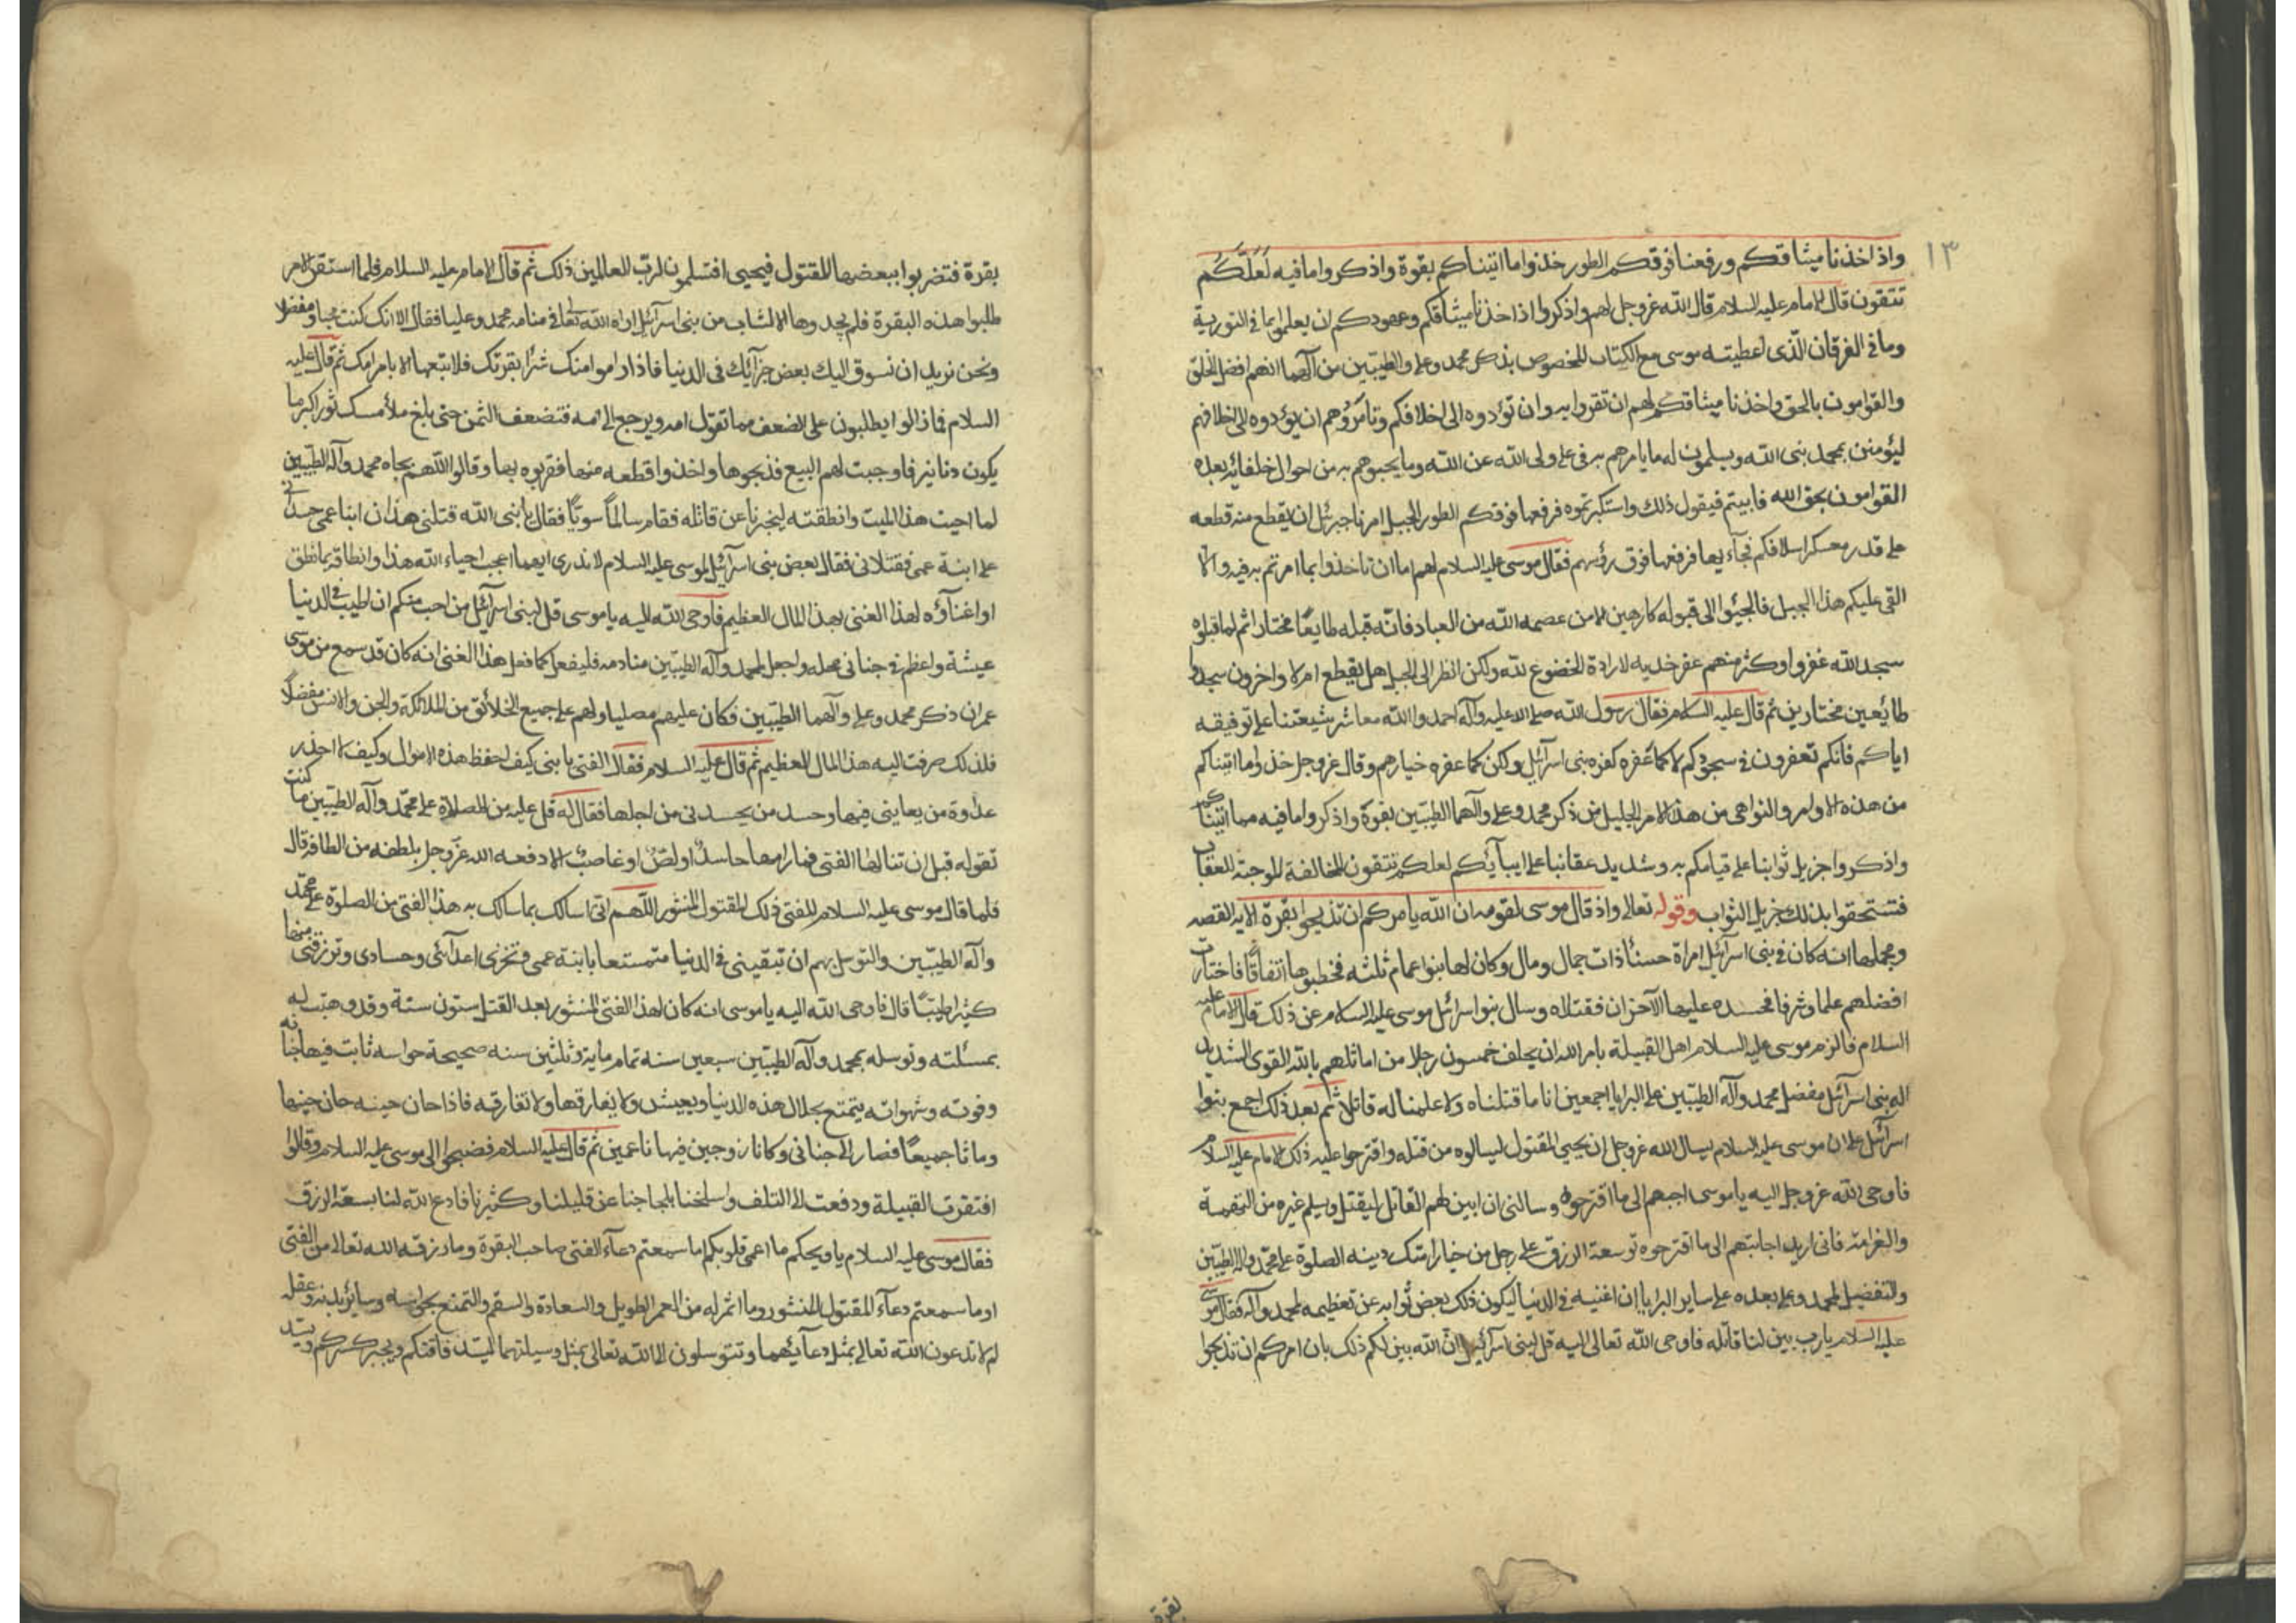 ١٣
واذ اخذنا ميثاقكم ورفعنا فوقكم الطور خذوا ما اتيناكم بقوة واذكروا ما فيه لَعَلَّكُم
تتقون قال الامام عليه السلام قال الله عزوجل لهم واذكروا اذ اخذنا ميثاقكم وعهودكم ان يعلموا بما فى التورية
وما فى الفرقان الّذى اعطيته موسى مع الكتاب المخصوص بذكر محمد وعلى والطيّبين من آلهما انهم افضل الخلق
والقوامون بالحق واخذنا ميثاقكم لهم ان تقروا به وان تؤدوه الى اخلافكم وتامروهم ان يؤدوه الى اخلافهم
ليؤمنن بمحمد نبى الله ويسلمون له ما يامرهم به فى على ولى الله عن الله وما يخبرهم به من احوال خلفائه بعده
القوامون بحق الله فابيتم فيقول ذلك واستكبرتموه فرفعها فوقكم الطور الجبل امرنا جبرئيل ان يقطع منه قطعه
على قدر معسكر اسلافكم فجآء بها فرفعها فوق رؤسهم فقال موسى عليه السلام لهم اما ان تاخذوا بما امرتم به فيه والا
القى عليكم هذا الجبل فالجئوا الى قبوله كارهين الا من عصمه الله من العباد فانّه قبله طايعًا مختارا ثم لما قبلوه
سجد الله عفروا وكثر منهم عفر خديه لا رادة الخضوع لله ولكن انظر الى الجبل هل يقطع ام لا واخرون سجدوا
طائعين مختارين ثم قال عليه السلام فقال رسول الله صلى الله عليه وآله احمدوا الله معاشر شيعتنا على توفيقه
اياكم فانكم تعفرون فى سجودكم لا كما عفره كفره بنى اسرآئيل ولكن كما عفره خيارهم وقال عزوجل خذوا ما اتيناكم
من هذه الاوامر والنواهى من هذا الامر الجليل من ذكر محمد وعلى وآلهما الطيّبين بقوة واذكروا ما فيه مما اتيناكم
واذكروا جزيل ثوابنا على قيامكم به وشديد عقابنا على ابيآئكم لعلكم تتقون المخالفة الموجبة للعقاب
فتستحقوا بذلك جزيل الثواب وقوله تعالى واذ قال موسى لقومه ان الله يامركم ان تذبحوا بقرة الايه القصه
ومجملها انه كان فى بنى اسرآئيل امراة حسنآ ذات جمال ومال وكان لها بنوا عمام ثلثه فخطبوها اتفاقًا فاختارت
افضلهم علما وشرفا فحسده عليها الآخران فقتلاه وسال بنوا اسرائيل موسى عليه السلام عن ذلك قال الامام عليه
السلام فالزم موسى عليه السلام اهل القبيلة بامر الله ان يحلف خمسون رجلا من اماثلهم بالله القوى الشديد
اله بنى اسرآئيل مفضل محمد وآله الطيّبين على البرايا اجمعين انا ما قتلناه ولا علمنا له قاتلا ثم بعد ذلك اجمع بنوا
اسرآئيل على ان موسى عليه السلام يسال الله عزوجل ان يحيى المقتول ليسالوه من قتله واقترحوا عليه ذلك الامام عليه السلام
فاوحى الله عزوجل اليه يا موسى اجبهم الى ما اقترحوه وسالنى ان ابين لهم القاتل ليقتل ويسلم غيره من التهمة
والغرامة فانى اريد اجابتهم الى ما اقترحوه توسعة الرزق على رجل من خيار امتك دينه الصلوة على محمد واله الطيّبين
والتفضيل لمحمد وعلى بعده على ساير البرايا ان اغنيه فى الدنيا ليكون ذلك بعض ثوابه عن تعظيمه لمحمد وآله فقال موسى
عليه السلام يا رب بين لنا قاتله فاوحى الله تعالى اليه قل لبنى اسرآئيل ان الله بين لكم ذلك بان امركم ان تذبحوا
بقرة
بقرة فتضربوا ببعضها المقتول فيحيى افتسلمون لرب العالمين ذلك ثم قال الامام عليه السلام فلما استقر الامر
طلبوا هذه البقرة فلم يجدوها الا لشاب من بنى اسرآئيل اراه الله تعالى فى منامه محمد وعليا فقالا انك كنت محبا ومفضلا
ونحن نريد ان نسوق اليك بعض جزآئك فى الدنيا فاذا راموا منك شرآ بقرتك فلا تبعها الا بامر امك ثم قال عليه
السلام فما زالوا يطلبون على الضعف مما تقول امه ويرجع الى امه فتضعف الثمن حتى بلغ ملأ مسك ثور اكبر ما
يكون دنانير فاوجبت لهم البيع فذبحوها واخذوا قطعه منها فضربوه بها وقالوا اللهم بجاه محمد وآله الطيّبين
لما احيت هذا الميت وانطقته ليخبرنا عن قاتله فقام سالمًا سويًا فقال يا نبى الله قتلنى هذان ابنا عمى حسدانى
على ابنة عمى فقتلانى فقال بعض بنى اسرآئيل لموسى عليه السلام لا ندرى ايهما اعجب احياء الله هذا وانطاقه بما نطق
او اغنآؤه لهذا الغنى بهذا المال العظيم فاوحى الله اليه يا موسى قل لبنى اسرآئيل من احب منكم ان اطيب فى الدنيا
عيشة واعظم فى جنانى محله واجعل لمحمد وآله الطيبين منادمه فليفعل كما فعل هذا الغنى انه كان قد سمع من موسى
عمران ذكر محمد وعلى وآلهما الطيّبين فكان عليهم مصليا ولهم على جميع الخلائق من الملائكة والجن والانس مفضلًا
فلذلك صرفت اليه هذا المال العظيم ثم قال عليه السلام فقال الفتى يا نبى كيف احفظ هذه الاموال وكيف لا احذر
عداوة من يعاينى فيها وحسد من يحسدنى من اجلها فقال له قل عليه من الصلاة على محمّد وآله الطيّبين ما كنت
تقوله قبل ان تنالها الفتى فما رامها حاسدٌ او لصٌ او غاصبٌ الا دفعه الله عزوجل بلطفه من الطافه قال
فلما قال موسى عليه السلام للفتى ذلك المقتول المنشور اللهم انى اسالك بما سالك به هذا الفتى من الصلوة على محمّد
وآله الطيّبين والتوسل بهم ان تبقينى فى الدنيا متمتعا بابنة عمى وتخزى اعدآئى وحسادى وترزقنى منها
كثيرا طيّبًا قال فاوحى الله اليه يا موسى انه كان لهذا الفتى المنشور بعد القتل ستون سنة وقد وهبت له
بمسئلته وتوسله بمحمد وآله الطيّبين سبعين سنه تمام ماية وثلثين سنه صحيحة حواسه ثابت فيها جنانه
وقوته وشهواته يتمتع بحلال هذه الدنيا ويعيش ولا يفارقها ولا تفارقه فاذا حان حينه حان حينها
وماتا جميعًا فصارا الى جنانى وكانا زوجين فيها ناعمين ثم قال عليه السلام فضجوا الى موسى عليه السلام وقالوا
افتقرت القبيلة ودفعت الى التلف واسلخنا بلجاجنا عن قليلنا وكثيرنا فادع الله لنا بسعة الرزق
فقال موسى عليه السلام يا ويحكم ما اعمى قلوبكم اما سمعتم دعآء الفتى صاحب البقرة وما رزقه الله تعالى من الفتى
او ما سمعتم دعآء المقتول المنشور وما اثر له من العمر الطويل والسعادة والسقم والتمتع بحواسه وساير بدنه وعقله
لم لا تدعون الله تعالى بمثل دعآئهما وتتوسلون الى الله تعالى بمثل وسيلتهما ليسد فاقتكم ويجبر كسركم ويسد